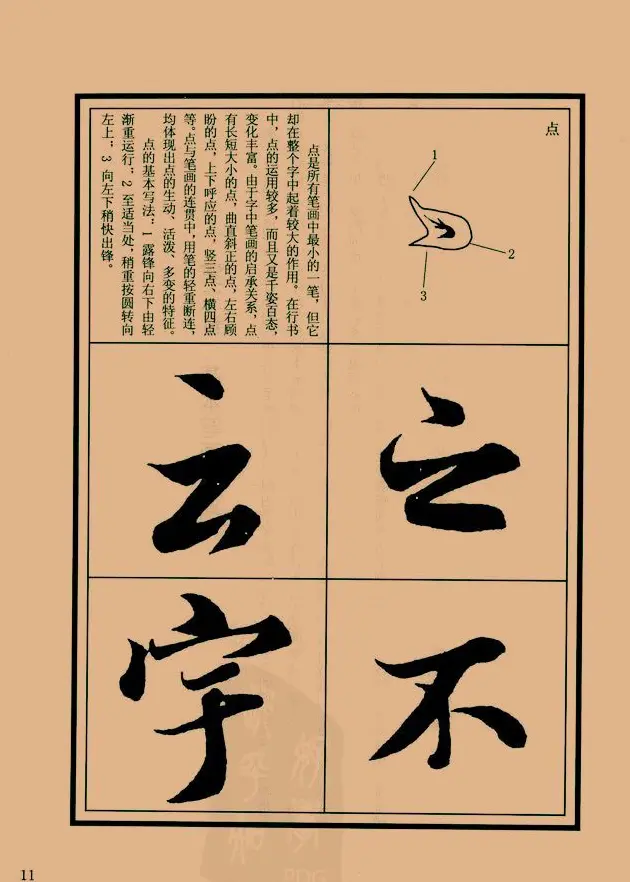 点
1
2
3
点是所有笔画中最小的一笔，但它
却在整个字中起着较大的作用。在行书
中，点的运用较多，而且又是千姿百态，
变化丰富。由于字中笔画的启承关系，点
有长短大小的点，曲直斜正的点，左右顾
盼的点，上下呼应的点，竖三点、横四点
等。点与笔画的连贯中，用笔的轻重断连，
均体现出点的生动、活泼、多变的特征。
点的基本写法：1 露锋向右下由轻
渐重运行；2 至适当处，稍重按圆转向
左上；3 向左下稍快出锋。
不
云
宇
11